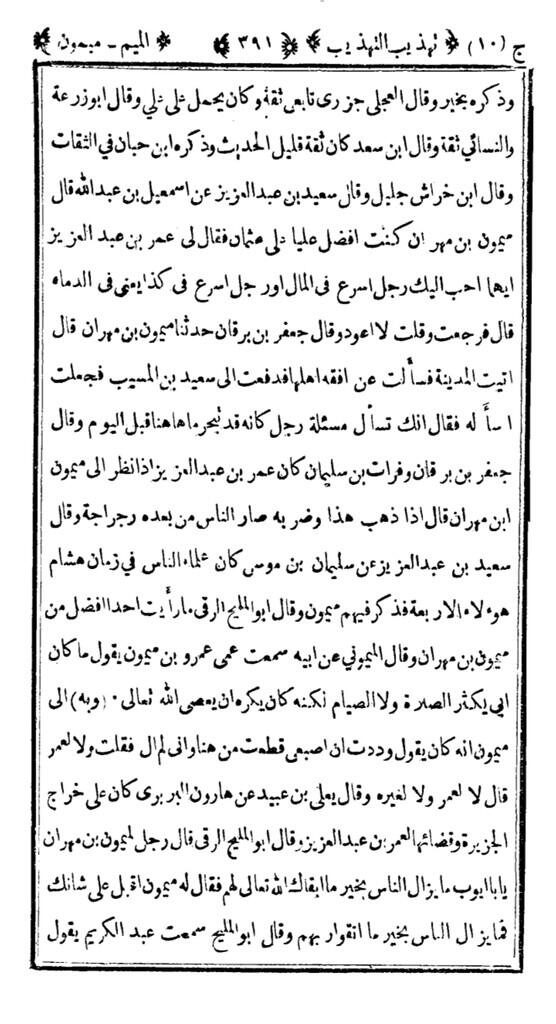 ج (١٠) ﴿ تهذيب التهذيب ﴾ ﴿ ٣٩١ ﴾ ﴿ الميم - ميمون ﴾
وذكره بخير وقال العجلي جزرى تابعى ثقة وكان يحمل على علي وقال ابوزرعة
والنسائي ثقة وقال ابن سعد كان ثقة قليل الحديث وذكره ابن حبان في الثقات
وقال ابن خراش جليل وقال سعيد بن عبد العزيز عن اسمعيل بن عبد الله قال
ميمون بن مهران كنت افضل عليا على عثمان فقال لى عمر بن عبد العزيز
ايهما احب اليك رجل اسرع فى المال اور جل اسرع فى كذا يعنى فى الدماء
قال فرجعت وقلت لا اعود وقال جعفر بن برقان حدثنا ميمون بن مهران قال
اتيت المدينة فسألت عن افقه اهلها فدفعت الى سعيد بن المسيب فجعلت
اسأله فقال انك تسأل مسئلة رجل كانه قد تبحر ماهاهنا قبل اليوم وقال
جعفر بن برقان وفرات بن سليمان كان عمر بن عبد العزيز اذا نظر الى ميمون
ابن مهران قال اذا ذهب هذا وضربه صار الناس من بعده رجراجة وقال
سعيد بن عبد العزيز عن سليمان بن موسى كان علماء الناس في زمان هشام
هوءلاء الاربعة فذكر فيهم ميمون وقال ابو المليح الرقى ما رأيت احدا افضل من
ميمون بن مهران وقال الميموني عن ابيه سمعت عمى عمرو بن ميمون يقول ما كان
ابي يكثر الصلاة ولا الصيام لكنه كان يكره ان يعصى الله تعالى · (وبه) الى
ميمون انه كان يقول وددت ان اصبعى قطعت من هنا وانى لم ال فقلت ولا لعمر
قال لا لعمر ولا لغيره وقال يعلى بن عبيد عن هارون البربرى كان على خراج
الجزيرة وقضائها لعمر بن عبد العزيز وقال ابو المليح الرقى قال رجل لميمون بن مهران
يا با ايوب ما يزال الناس بخير ما ابقاك الله تعالى لهم فقال له ميمون اقبل على شانك
فما يزال الناس بخير ما اتقوا ربهم وقال ابو المليح سمعت عبد الكريم يقول